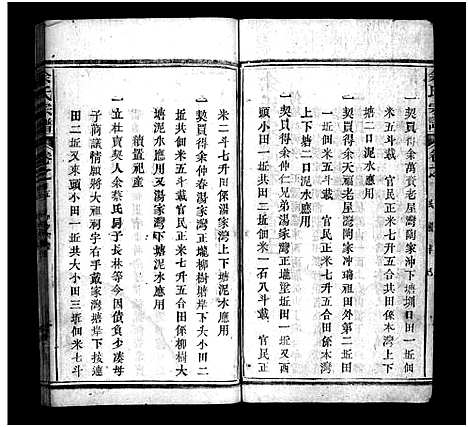 余氏宗譜
一契買得余萬資老屋灣陶家沖下塘圳口田一坵佃
米五斗載　官民正米七升五合田係本灣上下
塘二口泥水應用
一契買得余天福老屋灣陶家冲瑞祖田外第二坵田
一坵佃米五斗載　官民正米七升五合田係本灣
上下塘二口泥水應用
一契買得余仲仁兄弟湯家灣正壠堂坵田一坵又西
頭小田一坵共田二坵佃米一石八斗載　官民正
米二斗七升田係湯家灣上下塘泥水應用
一契買得余仲春湯家灣正壠柳樹塘岸下大小田二
坵共佃米五斗載　官民正米七升五合田係柳樹大
塘泥水應用又湯家灣下塘泥水應用
續置祀產
一立杜賣契人余蔡氏房子長林等今因債負少湊母
子商議情願將大祖祠宇右手戴家灣塘岸下拔連
田二坵又東頭小田一坵共大小田三坵佃米七斗
余氏宗譜